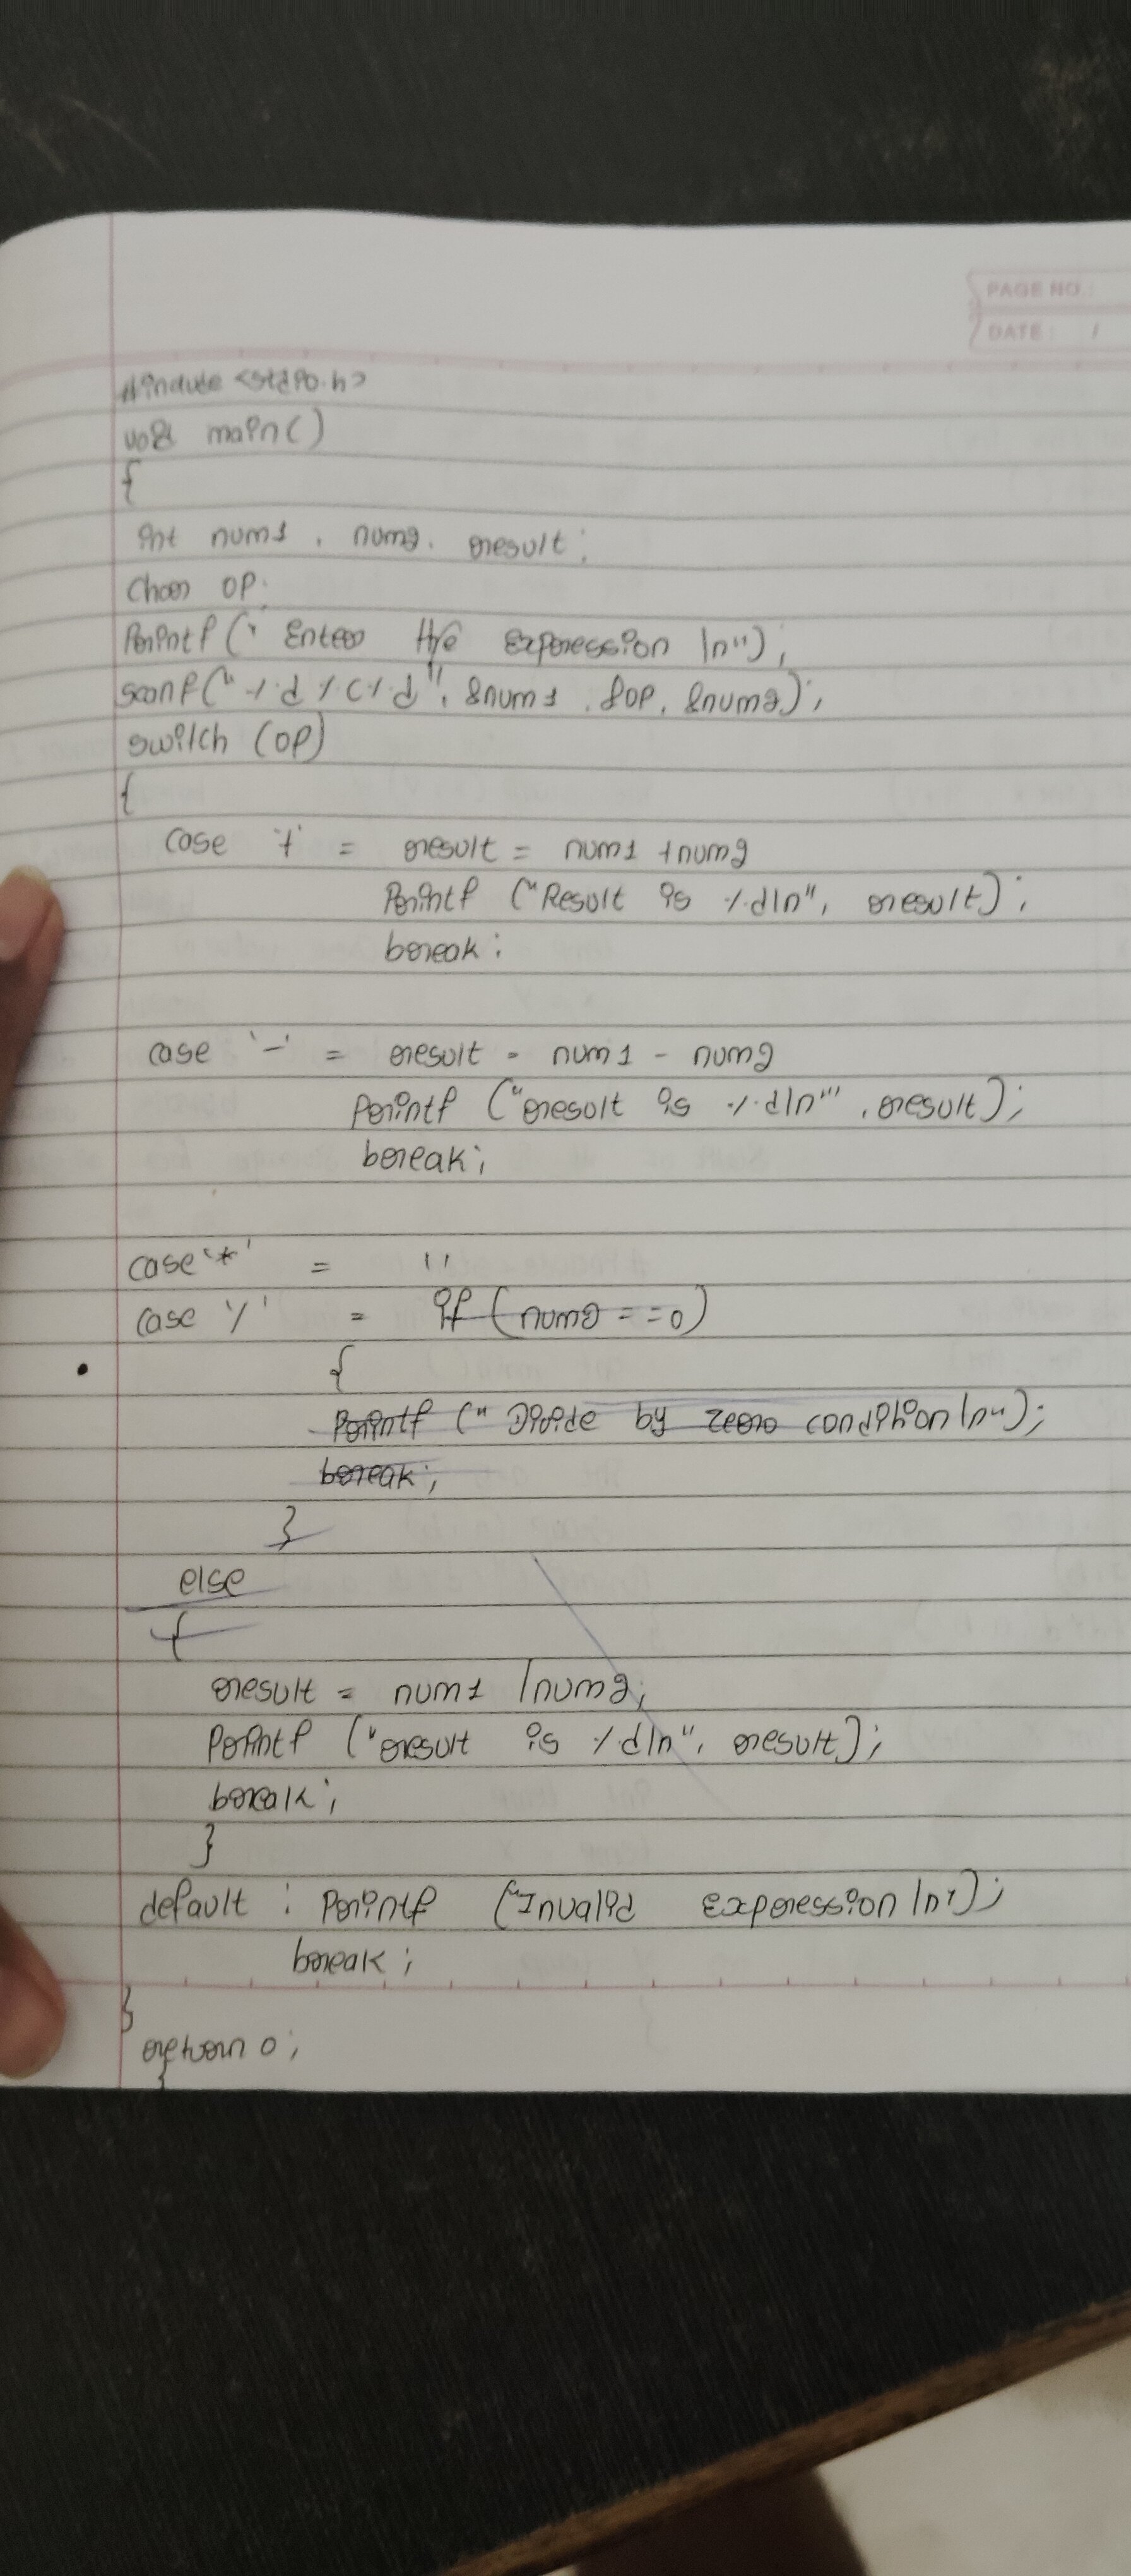 PAGE NO.:
DATE: /
#include <stdio.h>
void main()
{
int num1, num2, result;
Char op;
Printf (" Enter the expression \n");
scanf("%d%c%d", &num1, &op, &num2);
switch (op)
{
case '+' = result = num1 +num2
Printf ("Result is %d\n", result);
break;
case '-' = result = num1 - num2
Printf ("result is %d\n", result);
break;
case '*' = "
case '/' = if (num2 = = 0)
{
Printf (" Divide by zero condition \n");
break;
}
else
{
result = num1 /num2;
Printf ("result is %d\n", result);
break;
}
default : Printf ("Invalid expression \n");
break;
}
return 0;
}